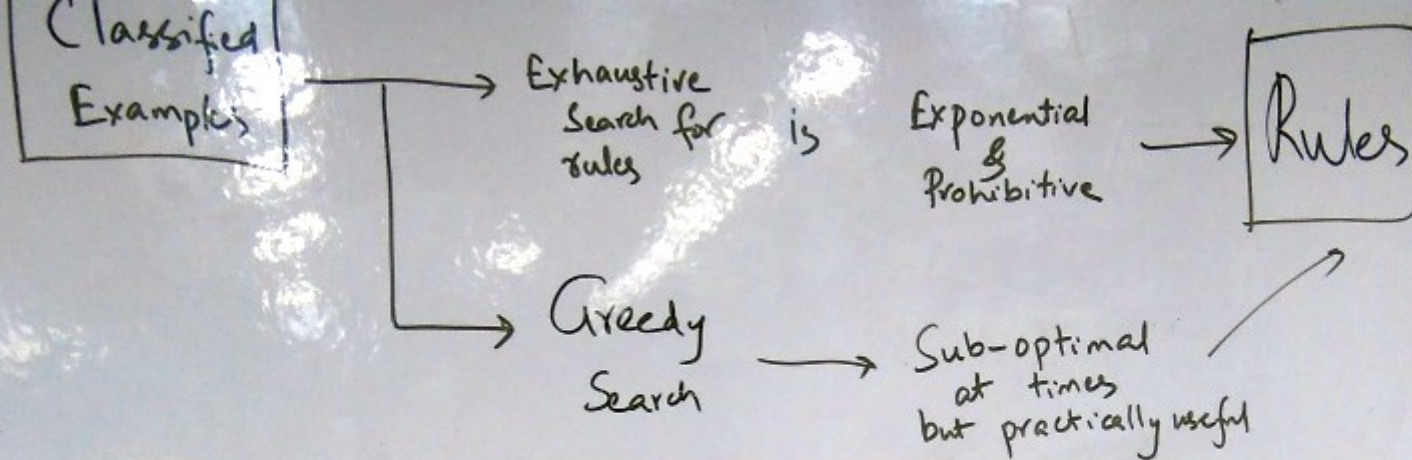 Classified
Examples
Exhaustive
Search for
rules
is
Exponential
&
Prohibitive
Rules
Greedy
Search
Sub-optimal
at times
but practically useful